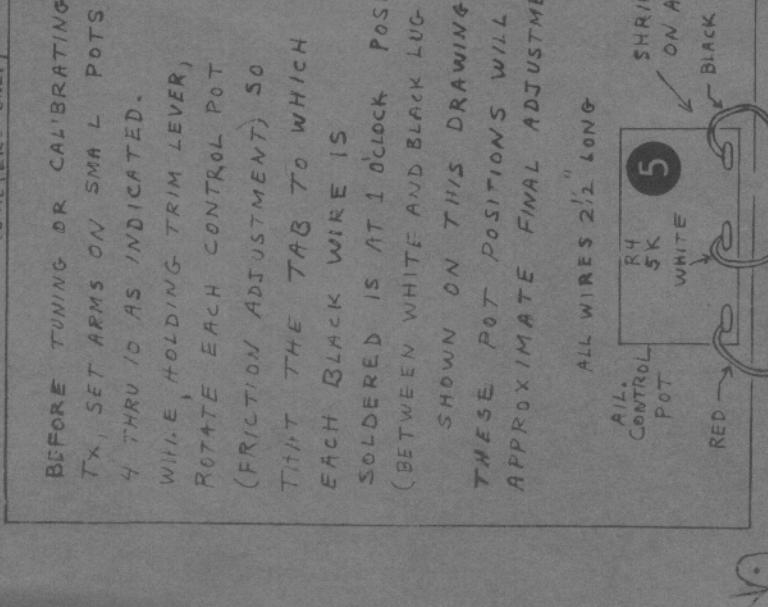 BEFORE TUNING OR CAL'BRATING
TX, SET ARMS ON SMA L POTS
4 THRU 10 AS INDICATED.
WHILE HOLDING TRIM LEVER,
ROTATE EACH CONTROL POT
(FRICTION ADJUSTMENT) SO
THAT THE TAB TO WHICH
EACH BLACK WIRE IS
SOLDERED IS AT 1 O'CLOCK POSI
(BETWEEN WHITE AND BLACK LUG
SHOWN ON THIS DRAWING
THESE POT POSITIONS WILL
APPROXIMATE FINAL ADJUSTME
ALL WIRES 2 1/2" LONG
SHRI
ON A
BLACK
5
R4
5K
WHITE
AIL.
CONTROL
POT
RED